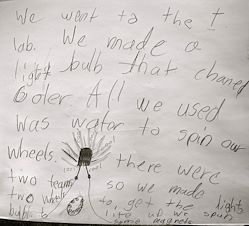 We went to the I
lab. We made a
light bulb that chaned
Coler All we used
was water to spin our
wheels. there were
two teams so we made
two wheels to get the light
bulb to lite up we spun
some magnets